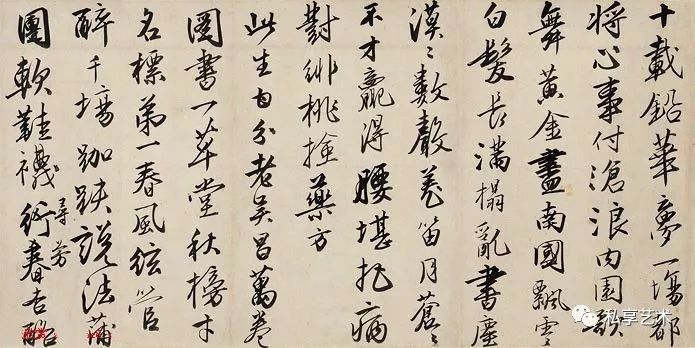 十載鉛華夢一場都
將心事付滄浪內園歌
舞黃金盡南國飄零
白髮長滿榻亂書塵
漠〻數聲羌笛月蒼〻
不才贏得腰堪把病
對緋桃撿藥方
此生自分老吳昌萬卷
圖書一草堂秋榜才
名標第一春風絃管
醉千場跏趺說法蒲
團軟鞋襪
尋芳
春杏酪
私享艺术